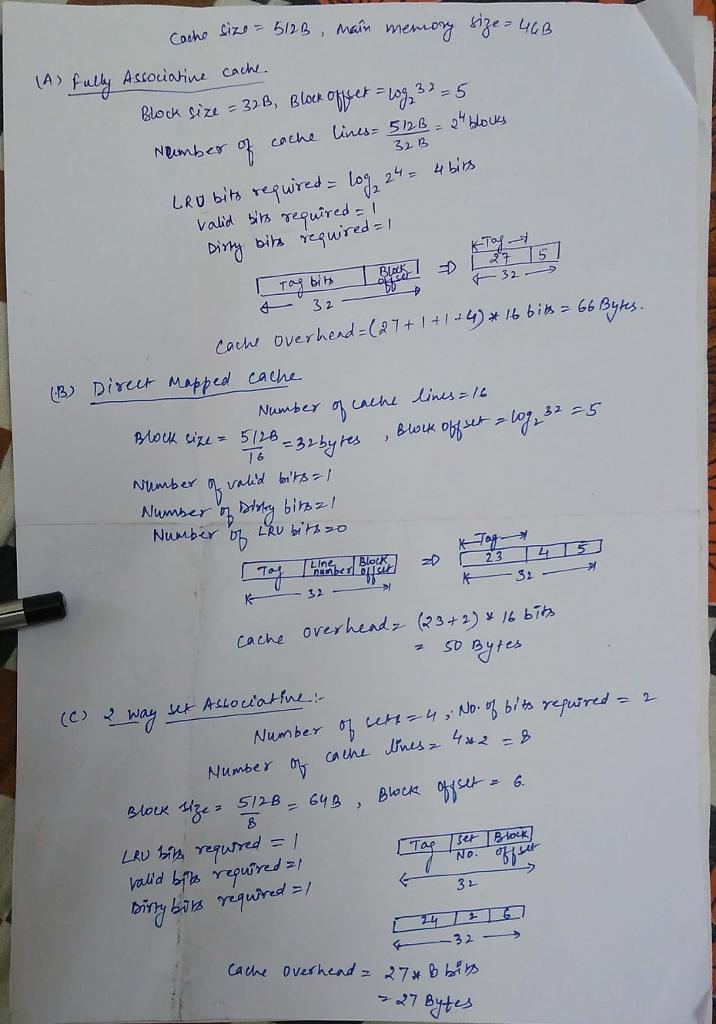 Cache Size = 512B, Main memory size = 4GB
(A) Fully Associative Cache.
Block size = 32B, Block offset = log₂ 32 = 5
Number of cache lines = 512B / 32B = 2⁴ blocks
LRU bits required = log₂ 2⁴ = 4 bits
Valid bits required = 1
Dirty bits required = 1
Tag bits | Block offset ⇒ Tag 27 | 5
32 32
Cache Overhead = (27+1+1+4) * 16 bits = 66 Bytes.
(B) Direct Mapped Cache
Number of cache lines = 16
Block size = 512B / 16 = 32bytes , Block offset = log₂ 32 = 5
Number of valid bits = 1
Number of Dirty bits = 1
Number of LRU bits = 0
Tag | Line number | Block offset ⇒ Tag 23 | 4 | 5
32 32
Cache overhead = (23+2) * 16 bits
= 50 Bytes
(C) 2 way set Associative :-
Number of sets = 4 ; No. of bits required = 2
Number of cache lines = 4*2 = 8
Block size = 512B / 8 = 64B , Block offset = 6.
LRU bits required = 1
Valid bits required = 1
Dirty bits required = 1
Tag | Set No. | Block offset
32
24 | 2 | 6
32
Cache Overhead = 27 * 8 bits
= 27 Bytes